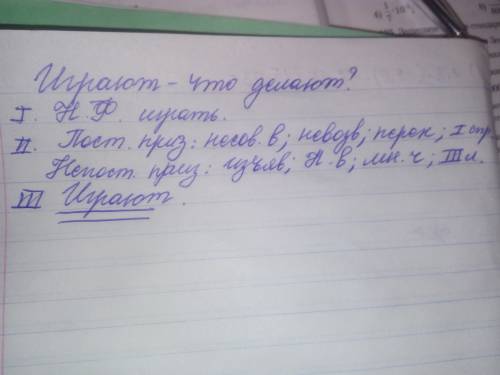 Играют - что делают?
I. Н. Ф. играть.
II. Пост. приз: несов. в; невозв; перех; I спр
Непост. приз: изъяв; Н. в; мн. ч; III л.
III Играют.